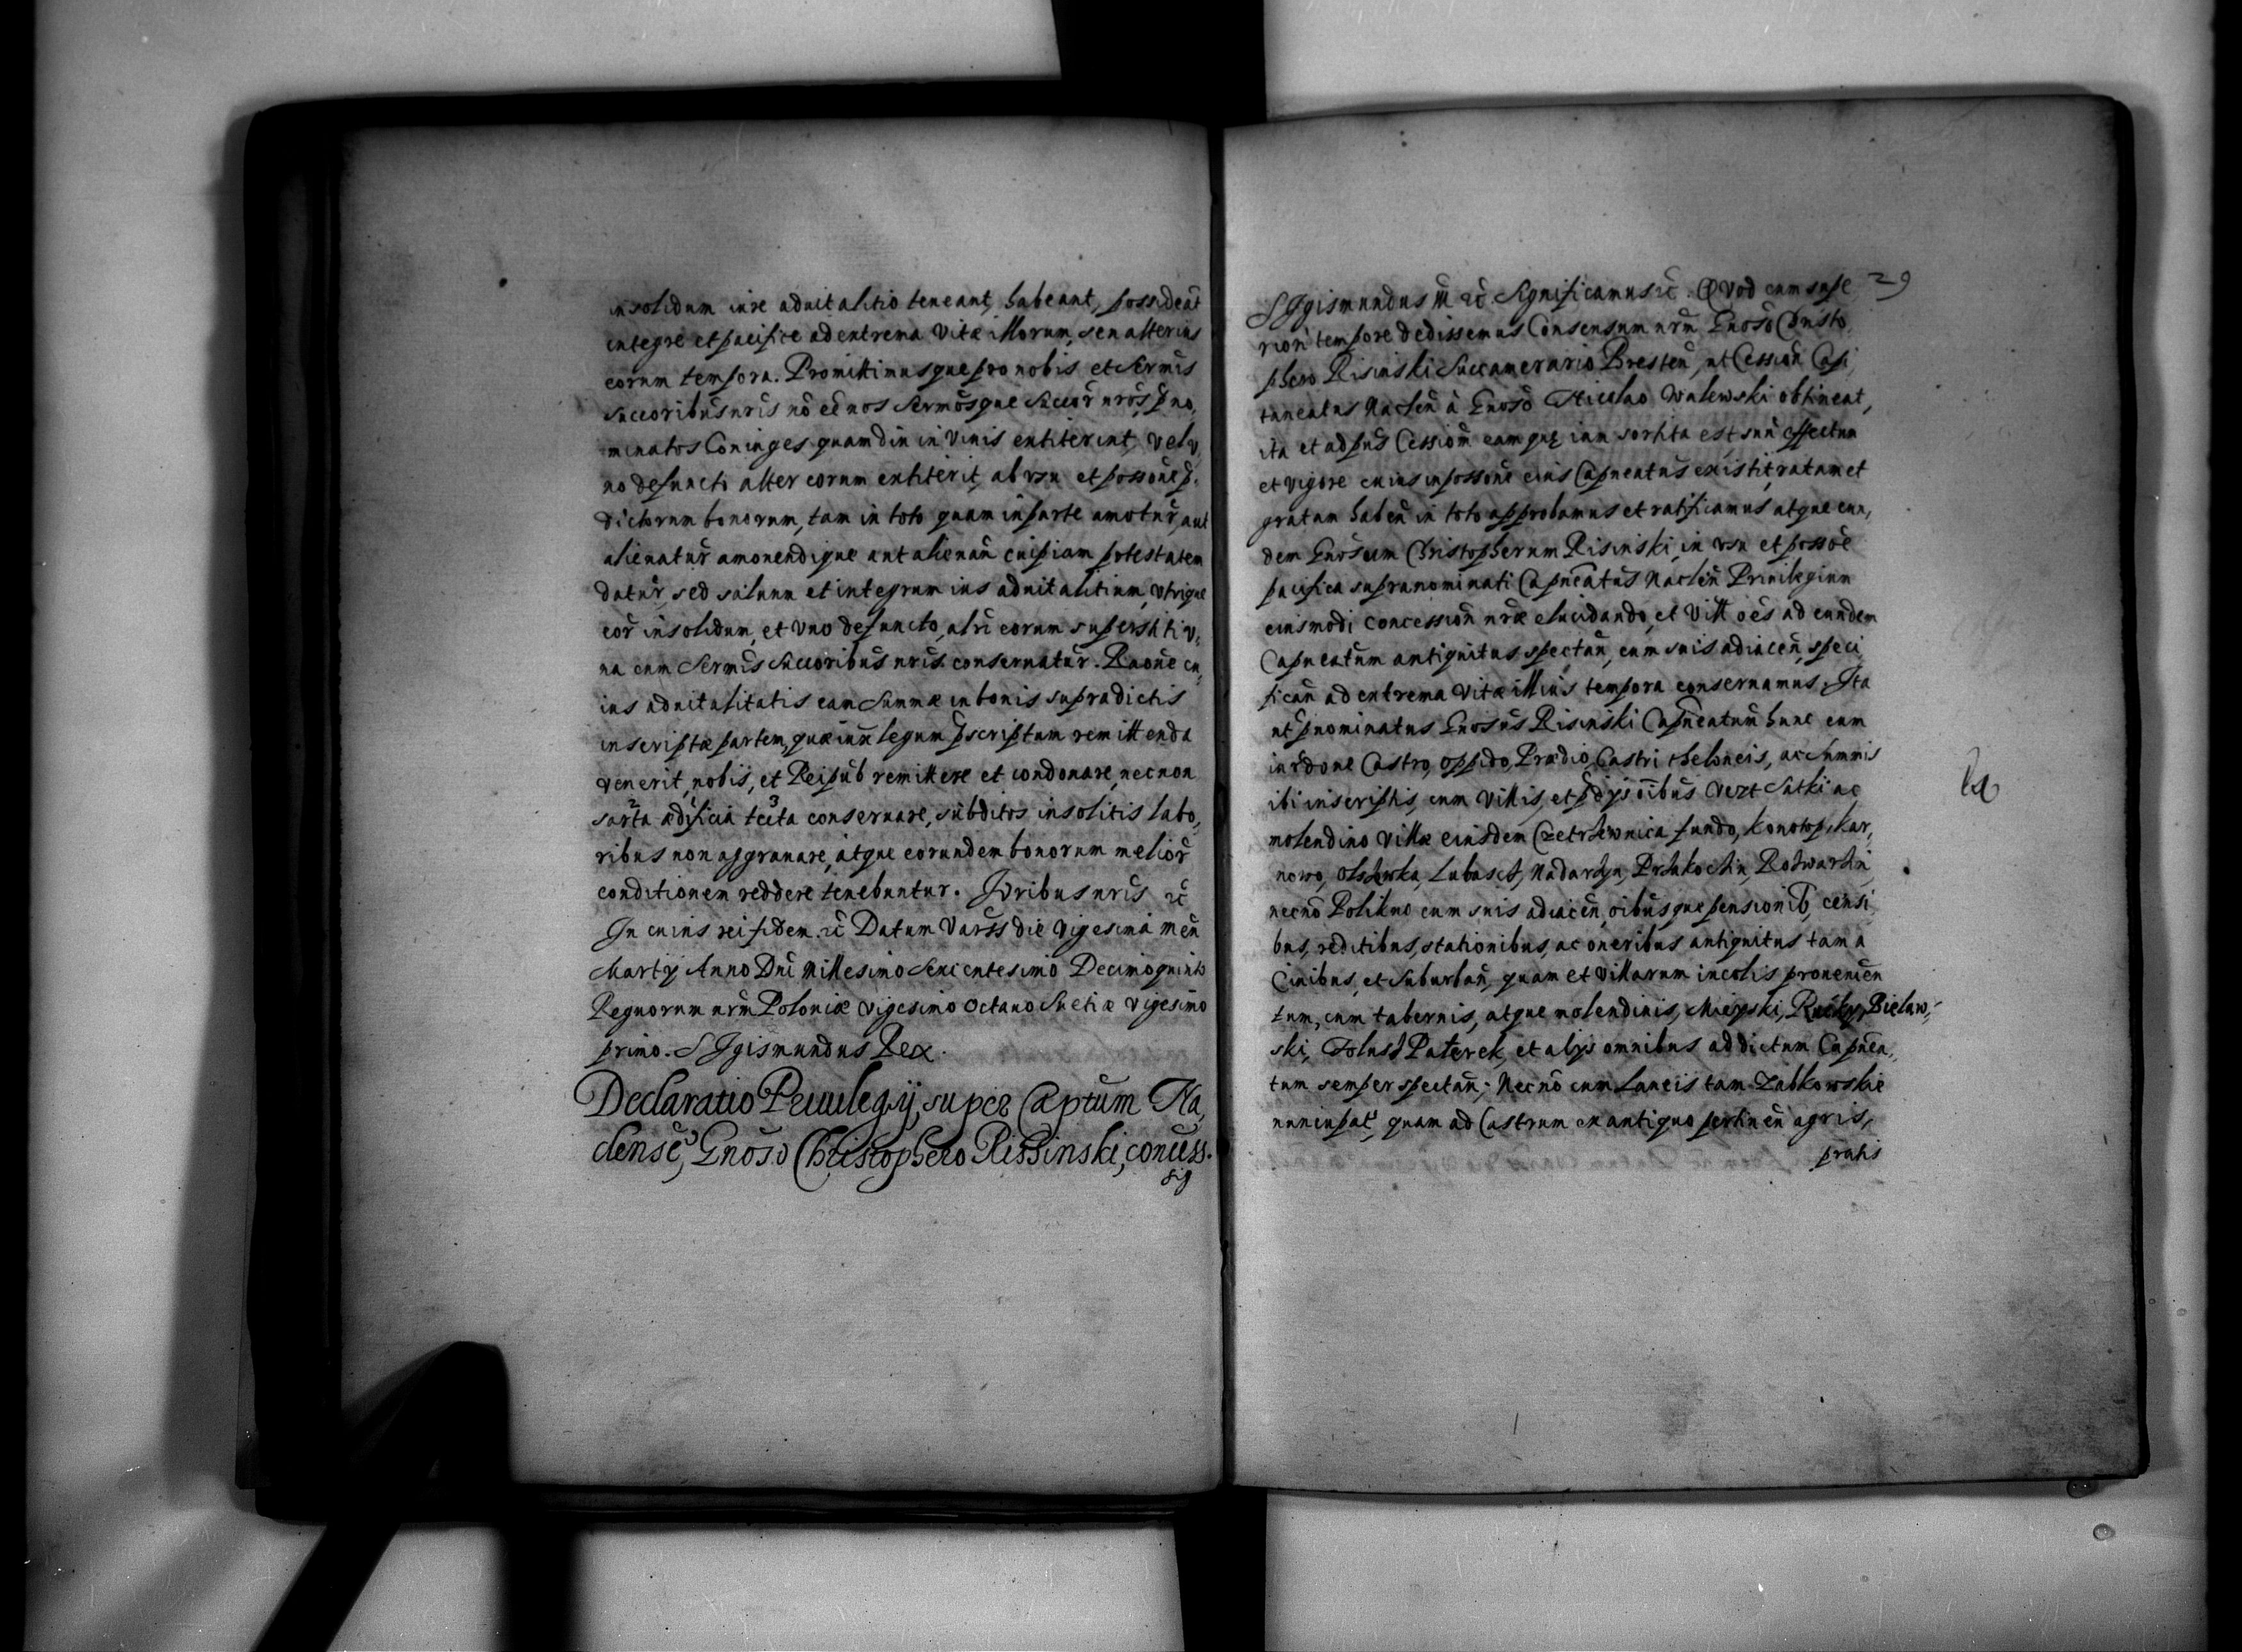 insolidum iure aduitalitio teneant, habeant, possideāt
integre et pacifice ad extrema Vitæ illorum, seu alterius
eorum tempora. Promittimusque pro nobis et Sermis
Succoribus nris nō eē nos Sermosque Succor nros, pno,
minatos Coniuges quamdiu in Viuis extiterint, Vel v,
no defuncto alter eorum extiterit, ab vsu et possone p.
dictorum bonorum, tam in toto quam in parte amotur, aut
alienatur amouendique aut alienan cuipiam potestatem
datur, sed saluum et integrum ius aduitalitium, Vtrique
eor insolidum, et Vno defuncto, altri eorum superstiti v,
na cum Sermis Succoribus nris conseruatur. Raone cu,
ius aduitalitatis eam Summæ in bonis supradictis
inscriptæ partem, quæ iuxta legum pscriptum remittenda
venerit, nobis, et Reipub remittere et condonare, necnon
sarta ædificia tecta conseruare, subditos insolitis labo,
ribus non aggrauare, atque eorundem bonorum melior
conditionem reddere tenebuntur. Juribus nris &c
In cuius rei fidem &c Datum Varss die Vigesima men
Martÿ Anno Dni Millesimo Sexcentesimo Decimoquinto
Regnorum nrm Poloniæ Vigesimo Octauo Suetiæ Vigesimo
primo. SIgismundus Rex.
Declaratio Priuilegÿ, super Cæptum Na,
clense, Gnoso Christophero Rissinski, concess.
Sig
29
SIgismundus III &c Significamus &c. QVod cum supe
riori tempore dedissemus Consensum nrm Gnoso Christo
phero Risinski Succamerario Bresten, ut Cession Capi
taneatus Naclen à Gnoso Nicolao Walewski obtineat,
ita et ad pns Cessiom eam quę iam sortita est, suū effectum
et Vigore cuius in possone eius Capneatus existit, ratam et
gratam haben in toto approbamus et ratificamus atque eun,
dem Gnosum Christopherum Risinski, in vsu et possoē
pacifica supranominati Capneatus Naclen Priuilegium
eiusmodi Concession nræ elucidando, et Vill oēs ad eundem
Capneatum antiquitus spectan, cum suis adiacen, speci,
fican ad extrema Vitæ illius tempora conseruamus. Ita
ut pnominatus Gnosus Risinski Capneatum hunc cum
iurdone Castro, Oppido, Prædio, Castri theloneis, ac Summis
ibi inscriptis, cum Villis, et pdÿs oibus Vezt Satki ac
molendino Villæ eiusdem Czetrzewnica fundo, Konotop, Kar,
nowo, Olszewka, Lubascz, Nadarzyn, Przhkoczhn, Rozwarzhn
necnō Polikno cum suis adiacen, oibusque pensionib, censi
bus, reditibus, stationibus, ac oneribus antiquitus tam a
Ciuibus, et Suburban, quam et Villarum incolis prouenien
tum, cum tabernis, atque molendinis, Mieyski, Rucky, Bielaw,
ski, Tolusz Paterek, et alÿs omnibus ad dictum Capnea,
tum semper spectan. Necnō cum Laneis tam Zabkowskie
nuncupat, quam ad Castrum ex antiquo pertinen agris,
pratis